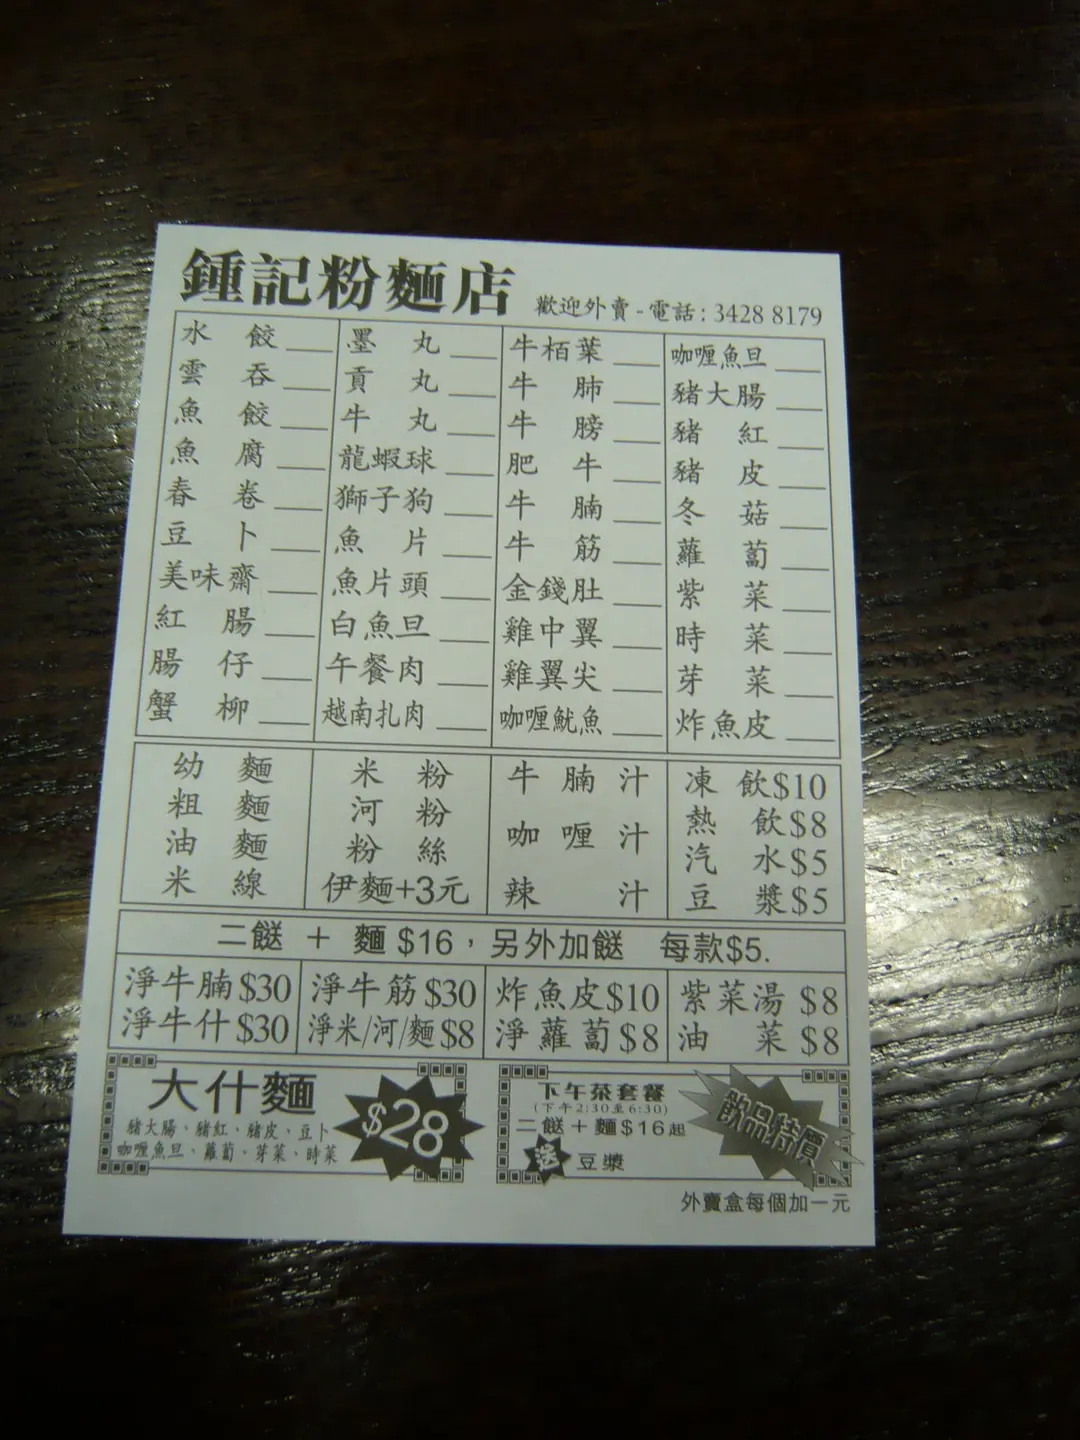 鍾記粉麵店
歡迎外賣 - 電話 : 3428 8179
水餃 ___ 墨丸 ___ 牛栢葉 ___ 咖喱魚旦 ___
雲吞 ___ 貢丸 ___ 牛肺 ___ 豬大腸 ___
魚餃 ___ 牛丸 ___ 牛膀 ___ 豬紅 ___
魚腐 ___ 龍蝦球 ___ 肥牛 ___ 豬皮 ___
春卷 ___ 獅子狗 ___ 牛腩 ___ 冬菇 ___
豆卜 ___ 魚片 ___ 牛筋 ___ 蘿蔔 ___
美味齋 ___ 魚片頭 ___ 金錢肚 ___ 紫菜 ___
紅腸 ___ 白魚旦 ___ 雞中翼 ___ 時菜 ___
腸仔 ___ 午餐肉 ___ 雞翼尖 ___ 芽菜 ___
蟹柳 ___ 越南扎肉 ___ 咖喱魷魚 ___ 炸魚皮 ___
幼麵
粗麵
油麵
米線
米粉
河粉
粉絲
伊麵+3元
牛腩汁
咖喱汁
辣汁
凍飲$10
熱飲$8
汽水$5
豆漿$5
二餸 + 麵 $16，另外加餸 每款$5.
淨牛腩$30 淨牛筋$30 炸魚皮$10 紫菜湯$8
淨牛什$30 淨米/河/麵$8 淨蘿蔔$8 油菜$8
大什麵
豬大腸、豬紅、豬皮、豆卜
咖喱魚旦、蘿蔔、芽菜、時菜
$28
下午茶套餐
(下午2:30至6:30)
二餸+麵$16起
送 豆漿
飲品特價
外賣盒每個加一元